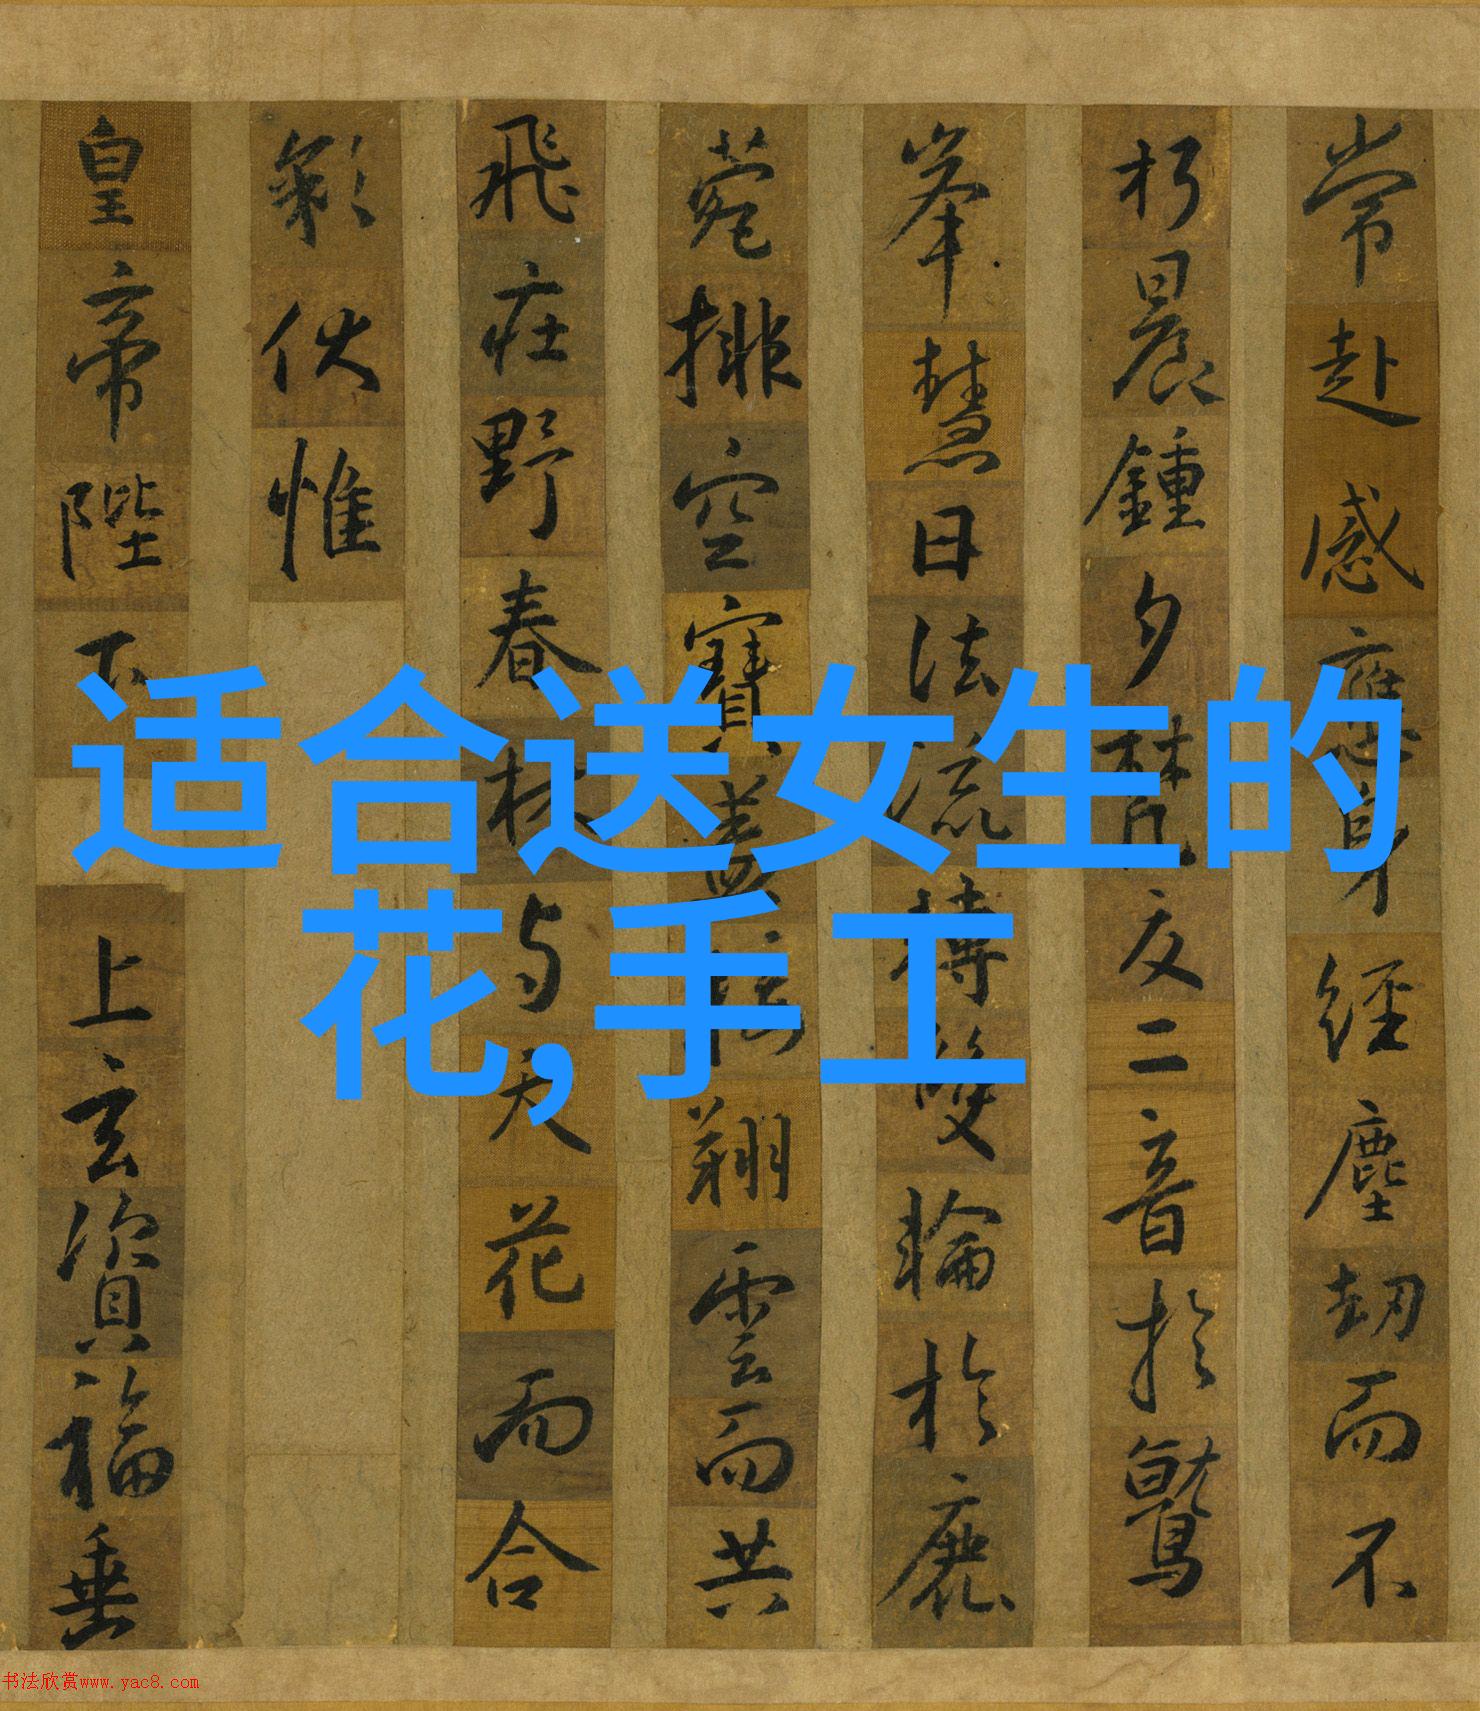 常赴感應身經塵劫而不
朽晨鍾夕梵交二音於鷲
峯慧日法流轉雙輪於鹿
菀排空寶蓋接翔雲而共
飛莊野春林与天花而合
彩伏惟
皇帝陛下上玄資福垂
适合送女生的
花,手工
书法欣赏www.yac8.com